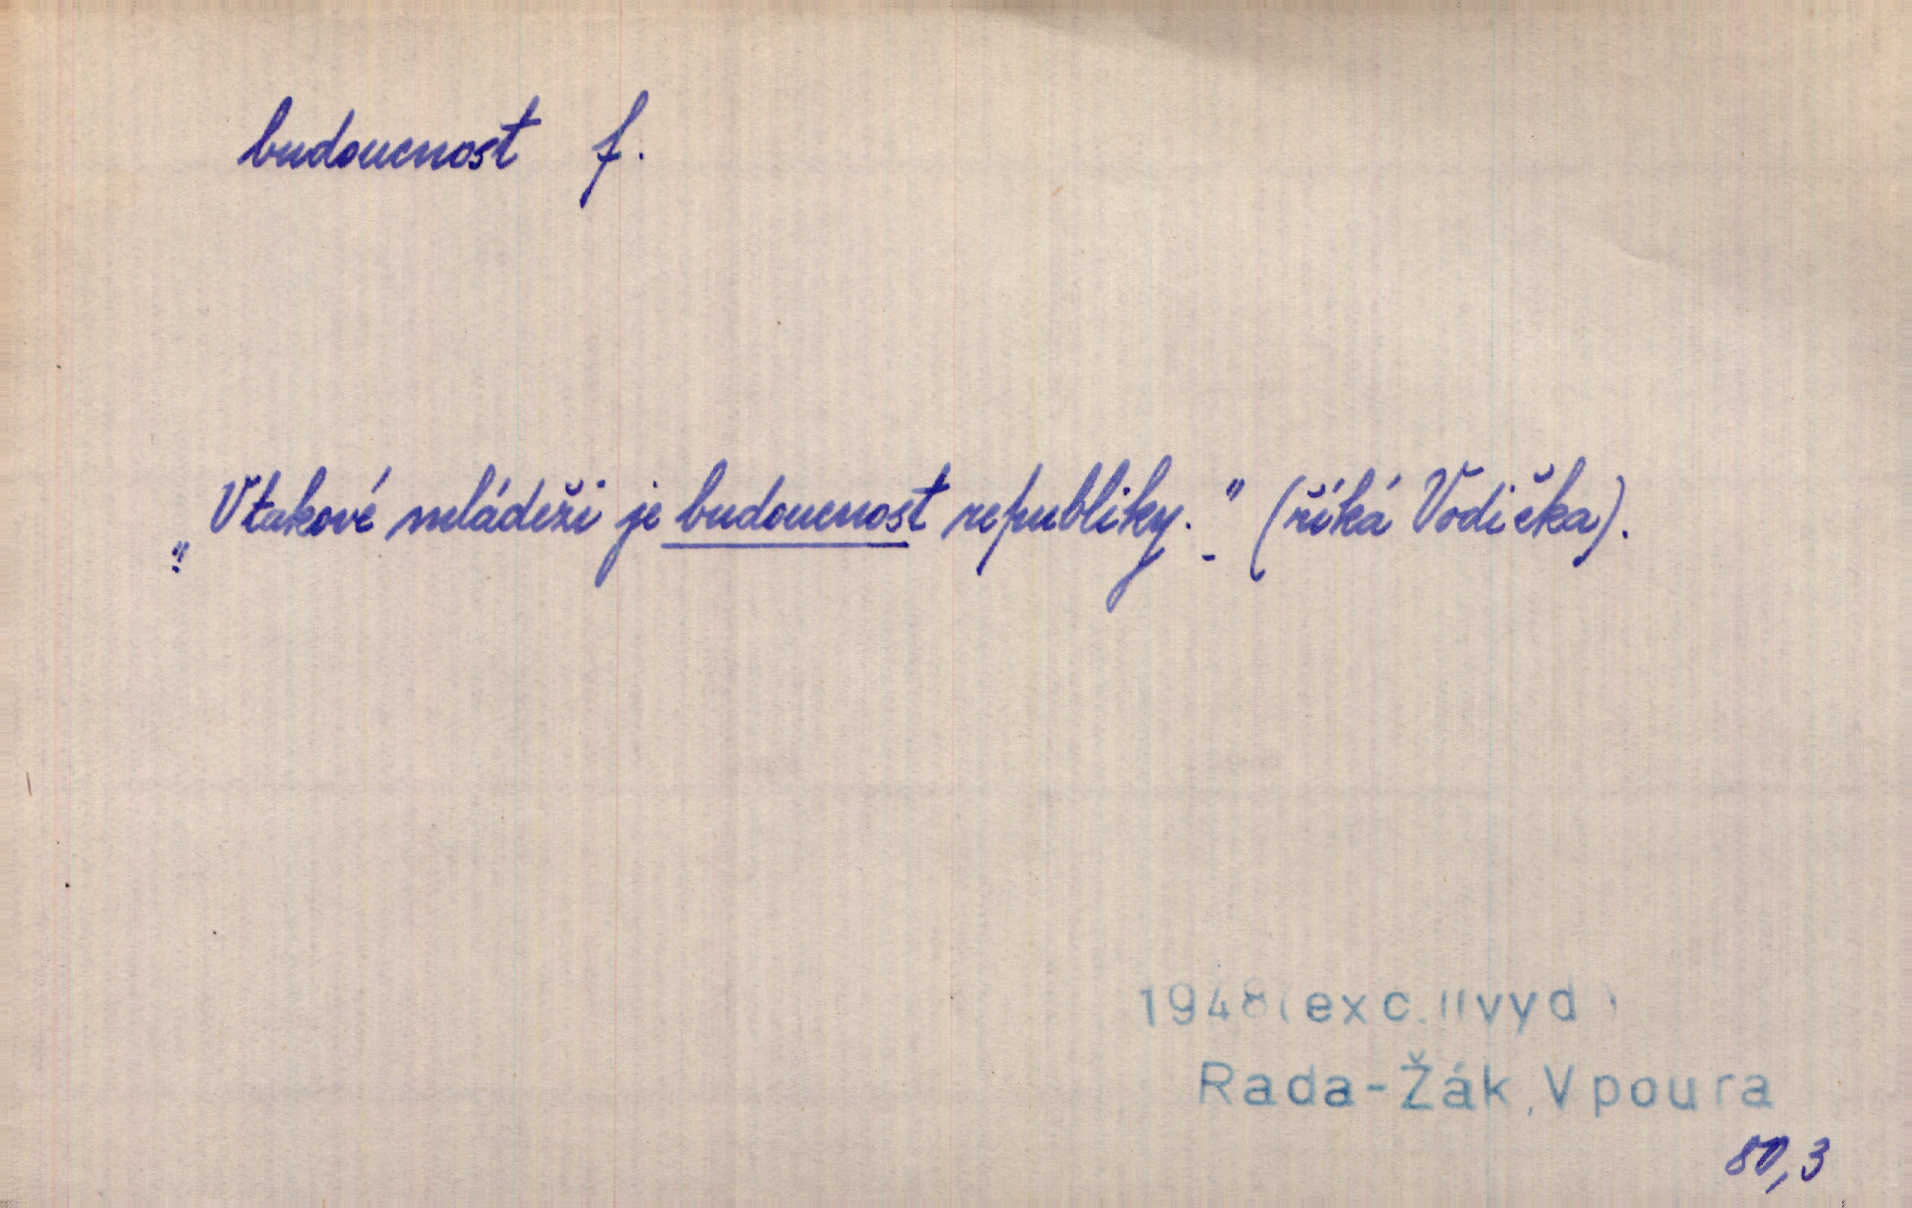 budoucnost f.
„V takové mládeži je budoucnost republiky.“ - (říká Vodička).
1948(exc.IIvyd)
Rada-Žák,Vpoura
80,3